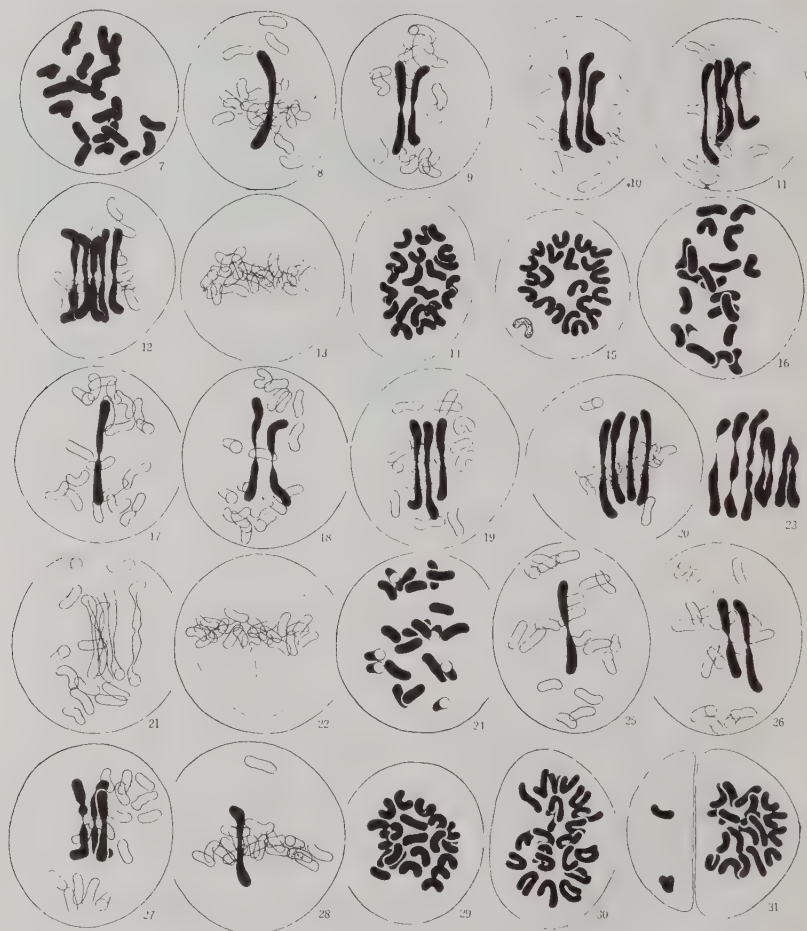 7 8 9 10 11
12 13 14 15 16
17 18 19 20 23
21 22 24 25 26
27 28 29 30 31